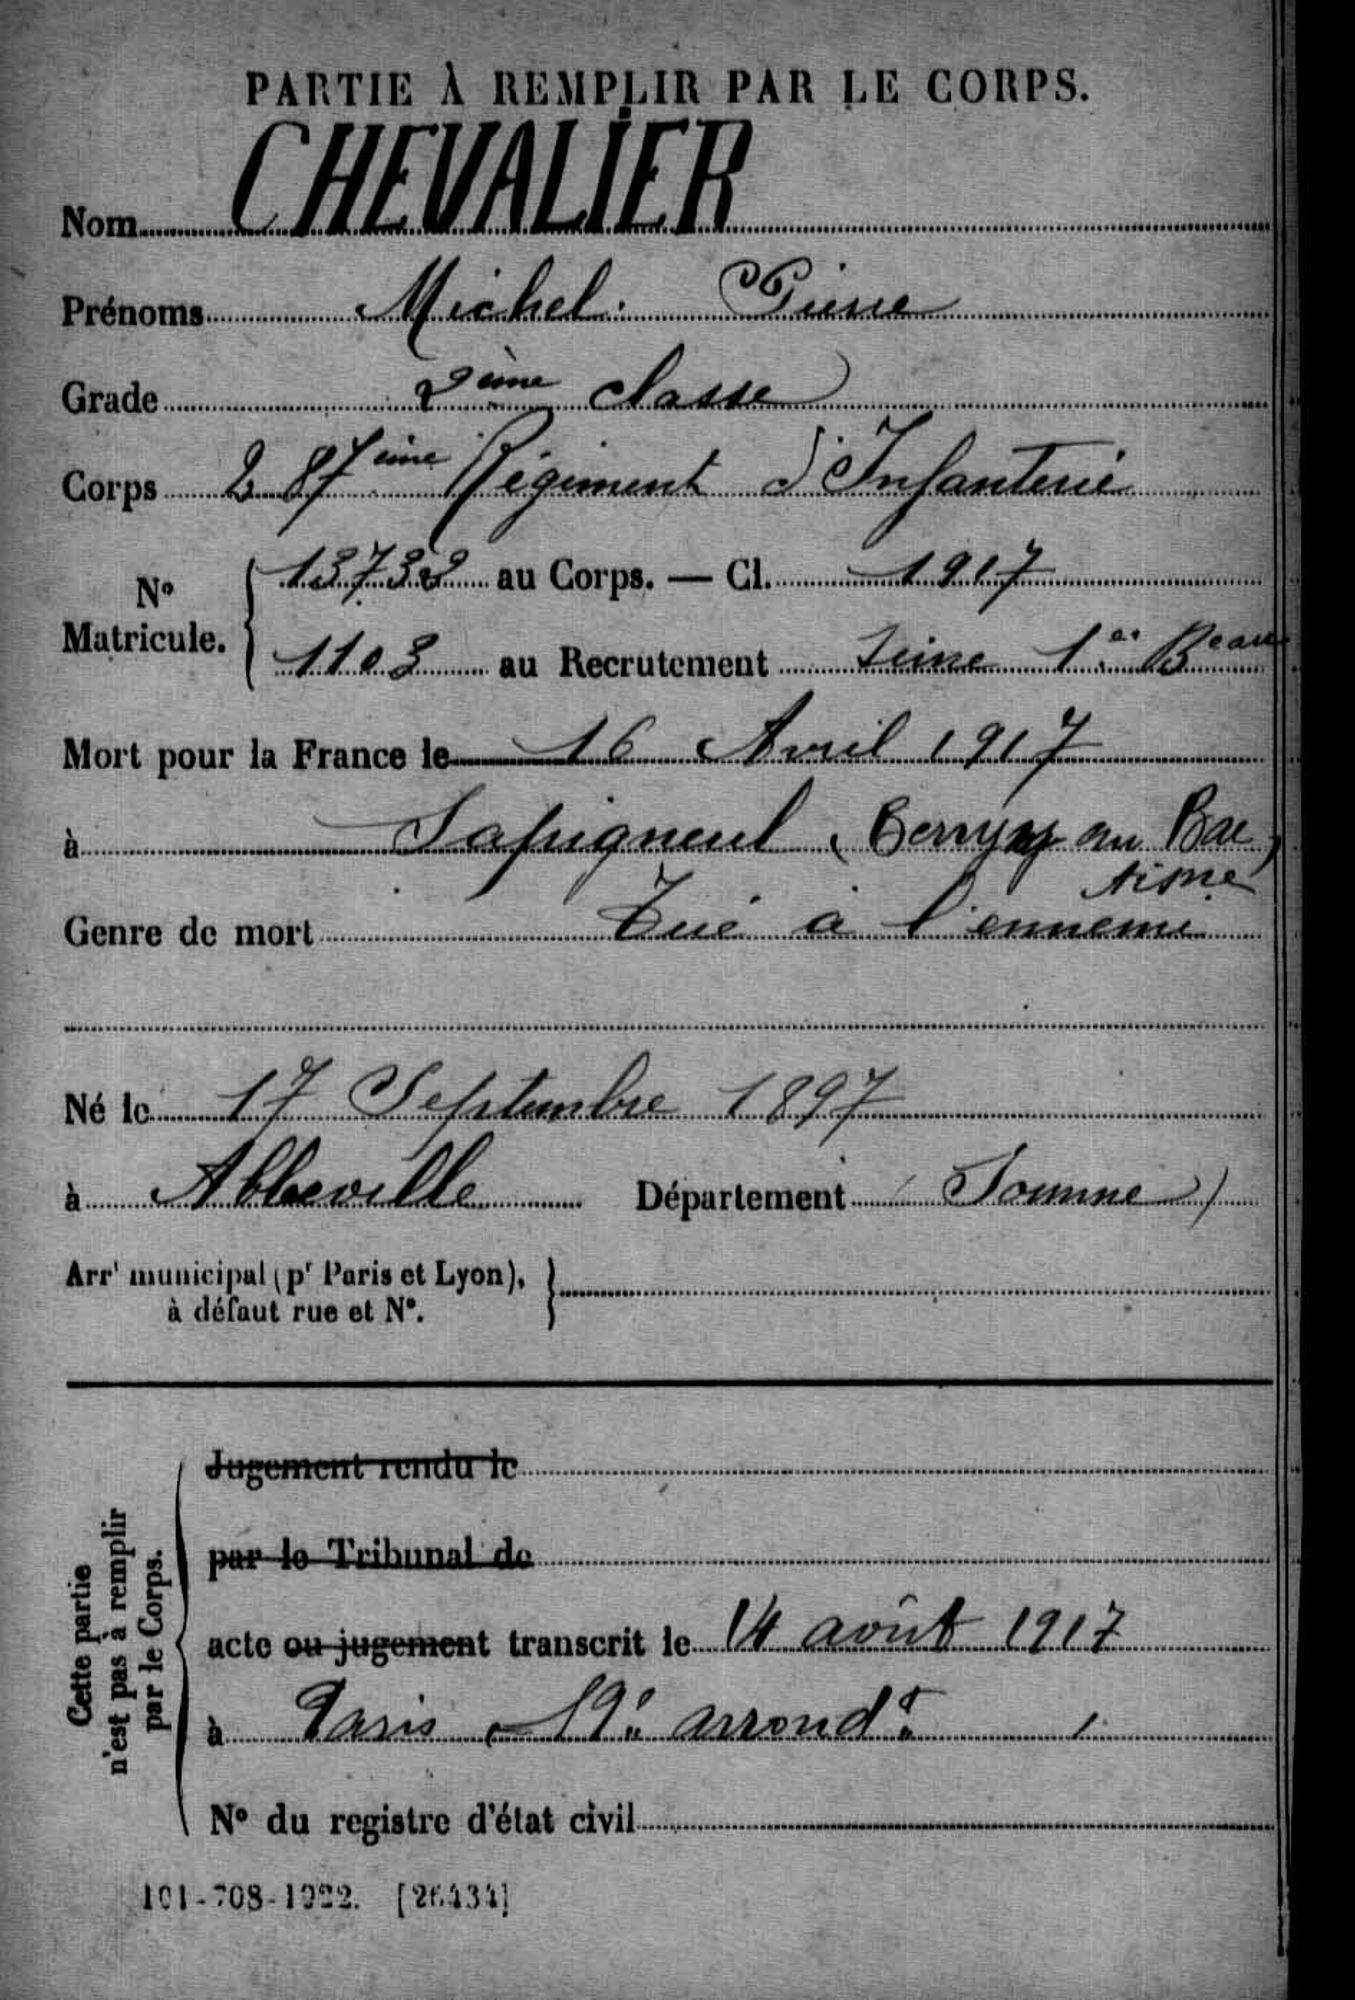 PARTIE À REMPLIR PAR LE CORPS.
Nom CHEVALIER
Prénoms Michel Pierre
Grade 2ème classe
Corps 287ème Régiment d'Infanterie
No Matricule. 13732 au Corps. — Cl. 1917
1103 au Recrutement Seine 1er Beau
Mort pour la France le 16 Avril 1917
à Sapigneul (Berry au Bac)
Aisne
Genre de mort Tué à l'ennemi
Né le 17 Septembre 1897
à Abbeville Département (Somme)
Arrt municipal (pr Paris et Lyon),
à défaut rue et No.
Cette partie
n'est pas à remplir
par le Corps.
Jugement rendu le
par le Tribunal de
acte ou jugement transcrit le 14 août 1917
à Paris arrondt
No du registre d'état civil
101-708-1922. [26434]